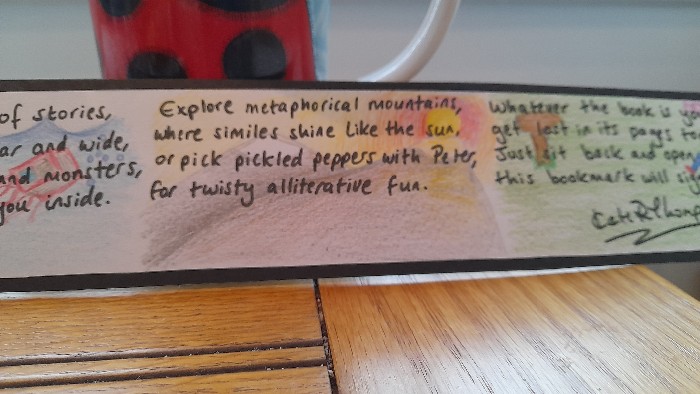 of stories,
and wide,
and monsters,
you inside.
Explore metaphorical mountains,
where similes shine like the sun,
or pick pickled peppers with Peter,
for twisty alliterative fun.
Whatever the book is
get lost in its pages
Just sit back and open
this bookmark will